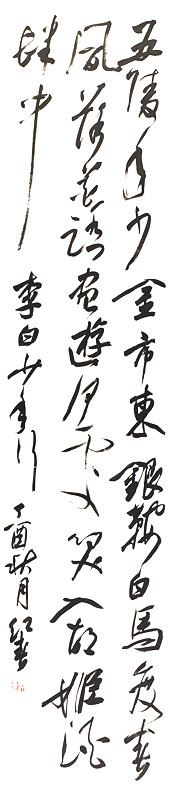 五陵年少金市東銀鞍白馬度春
風落花踏盡遊何處笑入胡姬酒
肆中
李白少年行
丁酉秋月